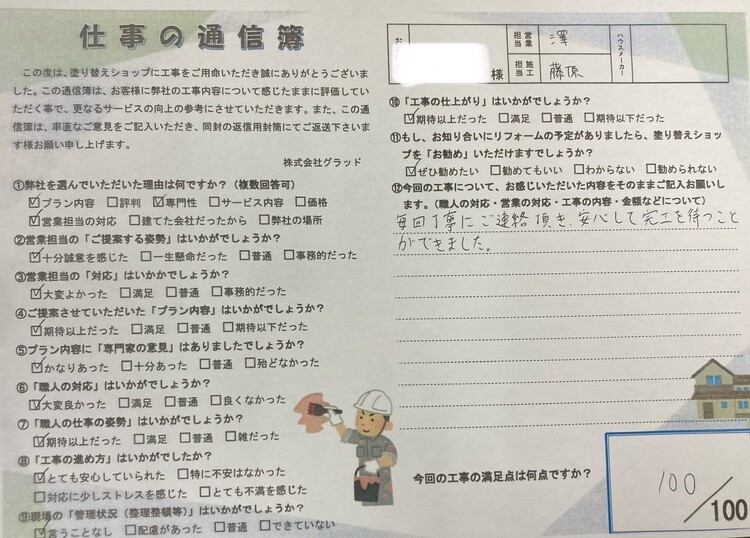 仕事の通信簿
この度は、塗り替えショップに工事をご用命いただき誠にありがとうございま
した。この通信簿は、お客様に弊社の工事内容について感じたままに評価してい
ただく事で、更なるサービスの向上の参考にさせていただきます。また、この通
信簿は、率直なご意見をご記入いただき、同封の返信用封筒にてご返送下さいま
す様お願い申し上げます。
株式会社グラッド
①弊社を選んでいただいた理由は何ですか？（複数回答可）
☑プラン内容 □評判 ☑専門性 □サービス内容 □価格
☑営業担当の対応 □建てた会社だったから □弊社の場所
②営業担当の「ご提案する姿勢」はいかがでしょうか？
☑十分誠意を感じた □一生懸命だった □普通 □事務的だった
③営業担当の「対応」はいかかでしょうか？
☑大変よかった □満足 □普通 □事務的だった
④ご提案させていただいた「プラン内容」はいかがでしょうか？
☑期待以上だった □満足 □普通 □期待以下だった
⑤プラン内容に「専門家の意見」はありましたでしょうか？
☑かなりあった □十分あった □普通 □殆どなかった
⑥「職人の対応」はいかがでしょうか？
☑大変良かった □満足 □普通 □良くなかった
⑦「職人の仕事の姿勢」はいかがでしょうか？
☑期待以上だった □満足 □普通 □雑だった
⑧「工事の進め方」はいかがでしたか？
☑とても安心していられた □特に不安はなかった
□対応に少しストレスを感じた □とても不満を感じた
⑨現場の「管理状況（整理整頓等）」はいかがでしょうか？
☑言うことなし □配慮があった □普通 □できていない
お
様
営業担当 澤
施工担当 藤原
ハウスメーカー
⑩「工事の仕上がり」はいかがでしょうか？
☑期待以上だった □満足 □普通 □期待以下だった
⑪もし、お知り合いにリフォームの予定がありましたら、塗り替えショッ
プを「お勧め」いただけますでしょうか？
☑ぜひ勧めたい □勧めてもいい □わからない □勧められない
⑫今回の工事について、お感じいただいた内容をそのままご記入お願いし
ます。（職人の対応・営業の対応・工事の内容・金額などについて）
毎回丁寧にご連絡頂き、安心して完工を待つこと
ができました。
今回の工事の満足点は何点ですか？
100／100